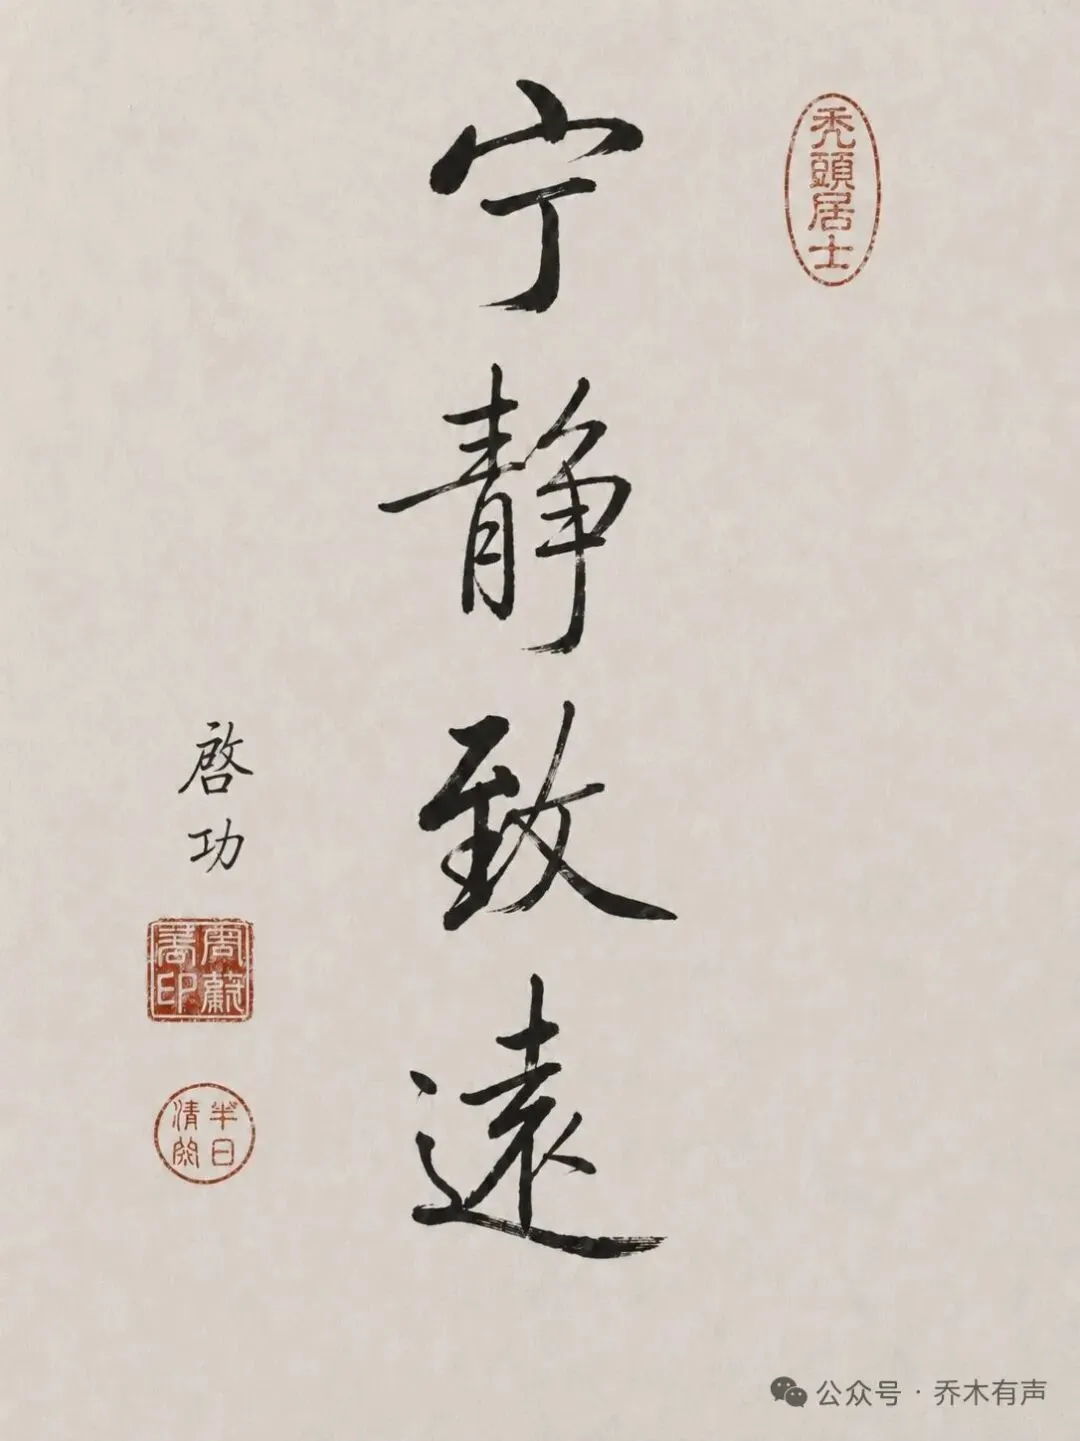 禿頭居士
宁静致遠
啓功
半日清
公众号 · 乔木有声